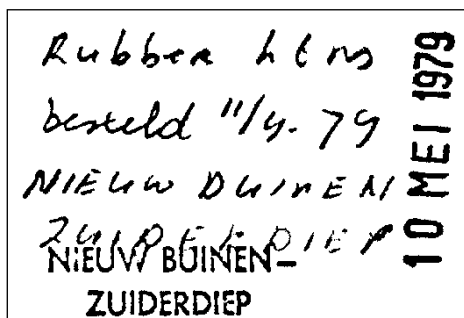 Rubber
besteld 11/4. 79
NIEUW DUINEN
ZUIDERDIEP
NIEUW BUINEN-
ZUIDERDIEP
10 MEI 1979